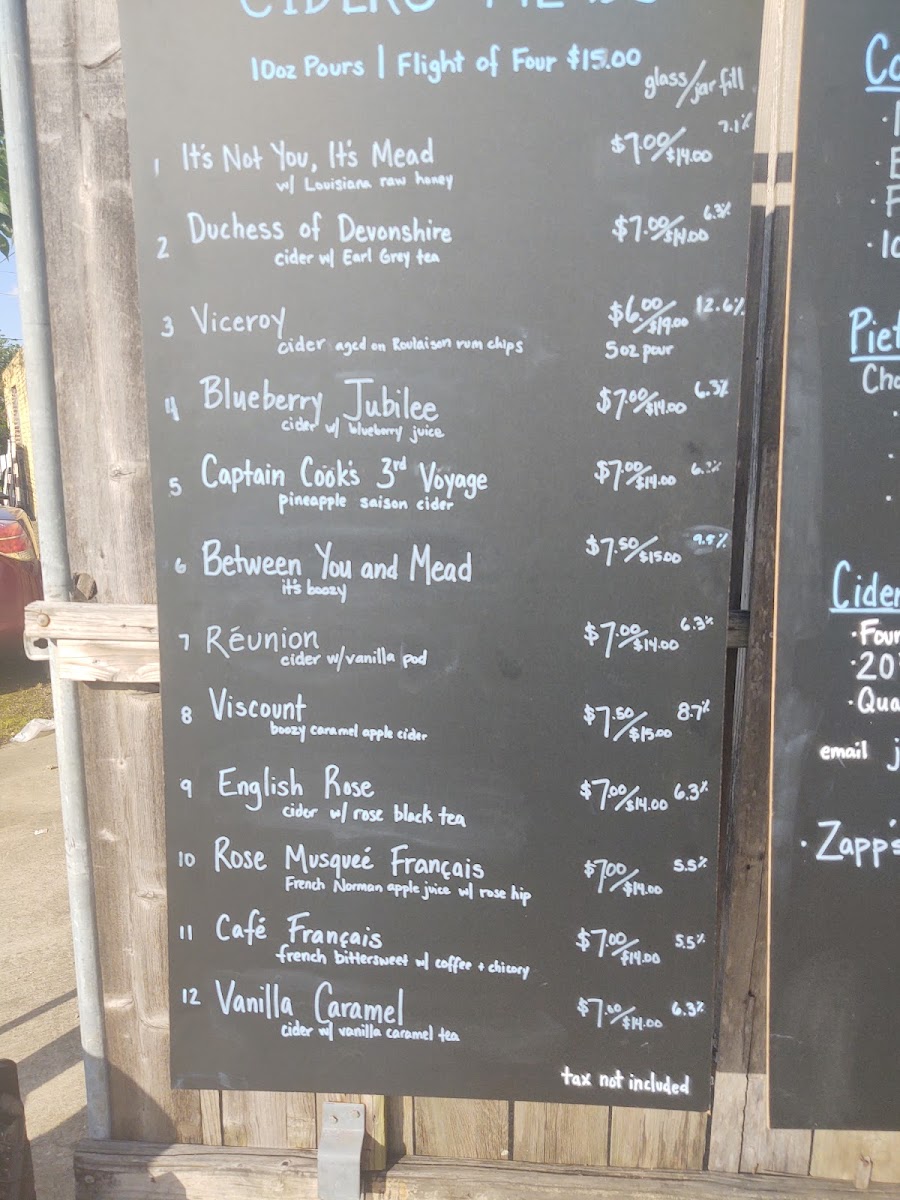 CIDERS
10oz Pours | Flight of Four $15.00
glass/jar fill
1 It's Not You, It's Mead $7.00/$14.00 7.1%
w/ Louisiana raw honey
2 Duchess of Devonshire $7.00/$14.00 6.3%
cider w/ Earl Grey tea
3 Viceroy $6.00/$19.00 12.6%
cider aged on Roulaison rum chips 5oz pour
4 Blueberry Jubilee $7.00/$14.00 6.3%
cider w/ blueberry juice
5 Captain Cook's 3rd Voyage $7.00/$14.00
pineapple saison cider
6 Between You and Mead $7.50/$15.00
it's boozy
7 Réunion $7.00/$14.00 6.3%
cider w/vanilla pod
8 Viscount $7.50/$15.00 8.7%
boozy caramel apple cider
9 English Rose $7.00/$14.00 6.3%
cider w/ rose black tea
10 Rose Musqueé Français $7.00/$14.00 5.5%
French Norman apple juice w/ rose hip
11 Café Français $7.00/$14.00 5.5%
french bittersweet w/ coffee + chicory
12 Vanilla Caramel $7.00/$14.00 6.3%
cider w/ vanilla caramel tea
tax not included
Co
Piet
Cho
Cider
·Four
·20
·Qua
email j
·Zapp's